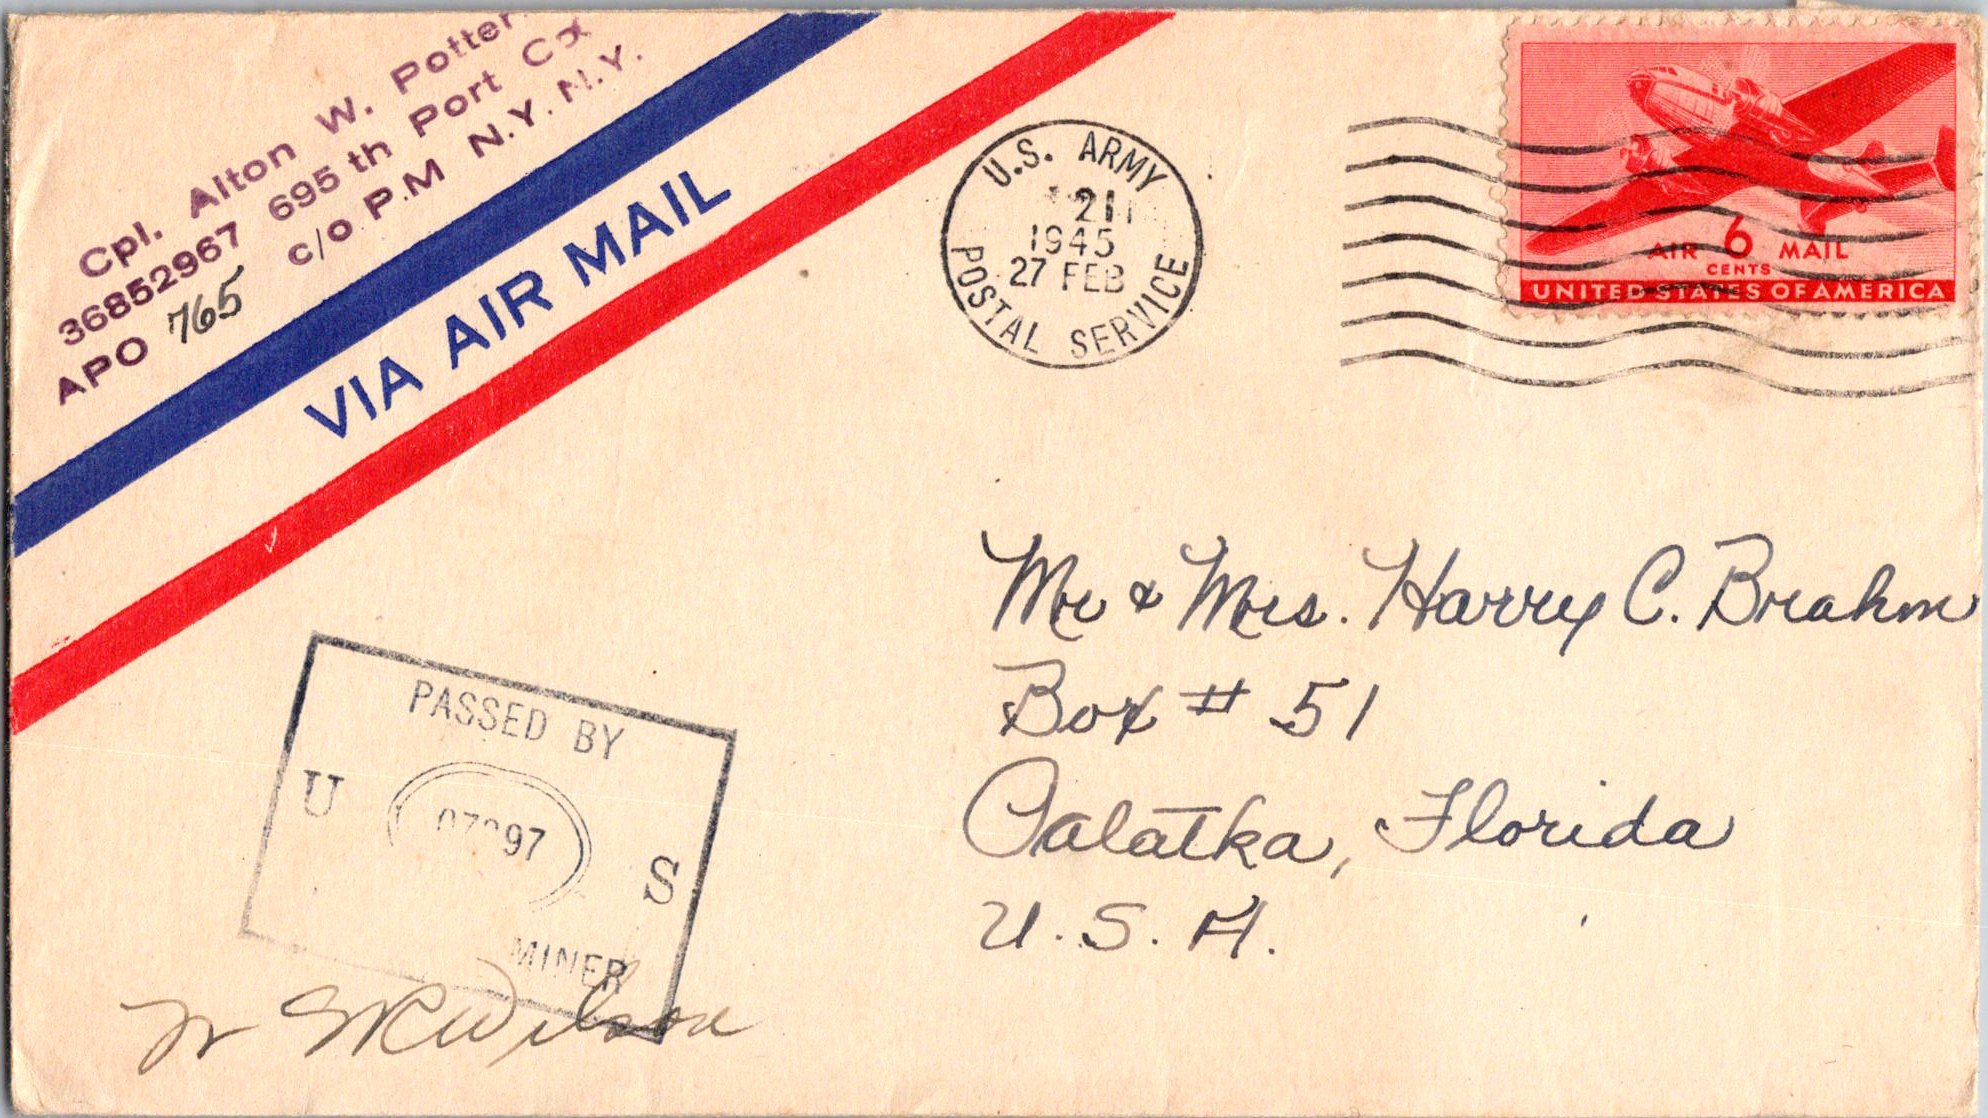 Cpl. Alton W. Potter
36852967 695th Port Co
APO 765 c/o P.M N.Y. N.Y.
VIA AIR MAIL
U.S. ARMY
21
1945
27 FEB
POSTAL SERVICE
AIR 6 MAIL
CENTS
UNITED STATES OF AMERICA
Mr & Mrs. Harry C. Brahm
Box # 51
Palatka, Florida
U. S. A.
PASSED BY
U S
MINER
Wilson